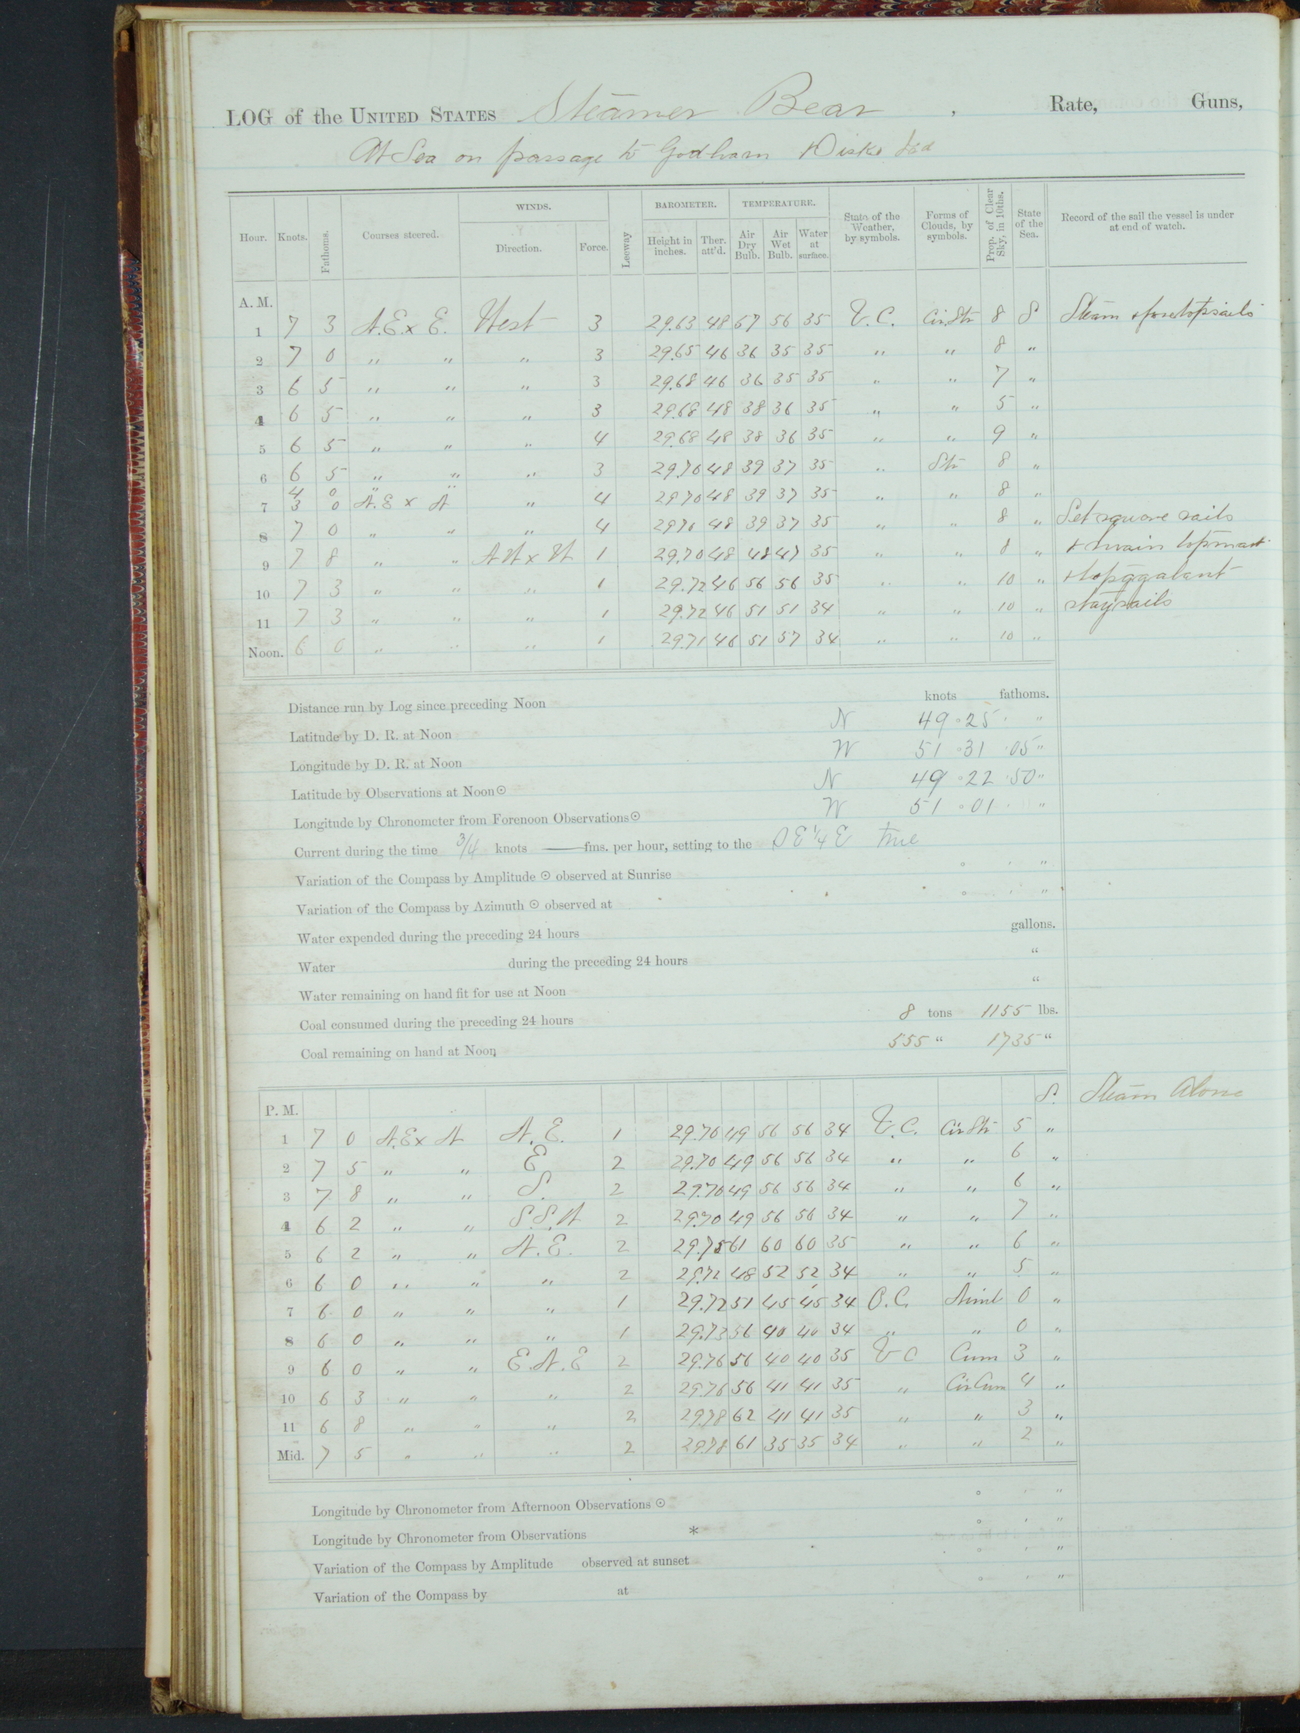 LOG of the UNITED STATES Steamer Bear , Rate, Guns,
At Sea on passage to Godhavn Disko Isd
Hour. Knots. Fathoms. Courses steered. WINDS. Direction. Force. Leeway BAROMETER. Height in inches. Ther. att'd. TEMPERATURE. Air Dry Bulb. Air Wet Bulb. Water at surface. State of the Weather, by symbols. Forms of Clouds, by symbols. Prop. of Clear Sky, in 10ths. State of the Sea. Record of the sail the vessel is under at end of watch.
A. M.
1 7 3 N.E x E. West 3 29.63 48 67 56 35 B.C. Cir.Str 8 S Steam & foretopsails
2 7 0 " " " 3 29.65 46 36 35 35 " " 8 "
3 6 5 " " " 3 29.68 46 36 35 35 " " 7 "
4 6 5 " " " 3 29.68 48 38 36 35 " " 5 "
5 6 5 " " " 4 29.68 48 38 36 35 " " 9 "
6 6 5 " " " 3 29.70 48 39 37 35 " Str 8 "
4 0 " "
7 3 0 N.E x N " 4 29.70 48 39 37 35 " " 8 "
8 7 0 " " " 4 29.70 48 39 37 35 " " 8 " Set square sails
9 7 8 " " NW x W 1 29.70 48 48 47 35 " " 8 " & main topmast
10 7 3 " " " 1 29.72 46 56 56 35 " " 10 " & topgalant
11 7 3 " " " 1 29.72 46 51 51 34 " " 10 " staysails
Noon. 6 0 " " " 1 29.71 46 51 57 34 " " 10 "
Distance run by Log since preceding Noon knots fathoms.
Latitude by D. R. at Noon N 49 ° 25 ' "
Longitude by D. R. at Noon W 51 ° 31 ' 05 "
Latitude by Observations at Noon ☉ N 49 ° 22 ' 50 "
Longitude by Chronometer from Forenoon Observations ☉ W 51 ° 01 ' "
Current during the time 3/4 knots —— fms. per hour, setting to the S E 1/4 E true
Variation of the Compass by Amplitude ☉ observed at Sunrise ° ' "
Variation of the Compass by Azimuth ☉ observed at ° ' "
Water expended during the preceding 24 hours gallons.
Water during the preceding 24 hours "
Water remaining on hand fit for use at Noon "
Coal consumed during the preceding 24 hours 8 tons 1155 lbs.
Coal remaining on hand at Noon 555 " 1735 "
P. M. S. Steam Alone
1 7 0 N.E x N N.E. 1 29.70 49 56 56 34 B.C. Cir.Str 5 "
2 7 5 " " E 2 29.70 49 56 56 34 " " 6 "
3 7 8 " " S. 2 29.70 49 56 56 34 " " 6 "
4 6 2 " " S.S.W 2 29.70 49 56 56 34 " " 7 "
5 6 2 " " N.E. 2 29.75 61 60 60 35 " " 6 "
6 6 0 " " " 2 29.72 48 52 52 34 " " 5 "
7 6 0 " " " 1 29.72 51 45 45 34 O.C. Nimb 0 "
8 6 0 " " " 1 29.73 56 40 40 34 " " 0 "
9 6 0 " " E.N.E 2 29.76 56 40 40 35 B C Cum 3 "
10 6 3 " " " 2 29.76 56 41 41 35 " Cir.Cum 4 "
11 6 8 " " " 2 29.78 62 41 41 35 " " 3 "
Mid. 7 5 " " " 2 29.78 61 35 35 34 " " 2 "
Longitude by Chronometer from Afternoon Observations ☉ ° ' "
Longitude by Chronometer from Observations * ° ' "
Variation of the Compass by Amplitude observed at sunset ° ' "
Variation of the Compass by at ° ' "